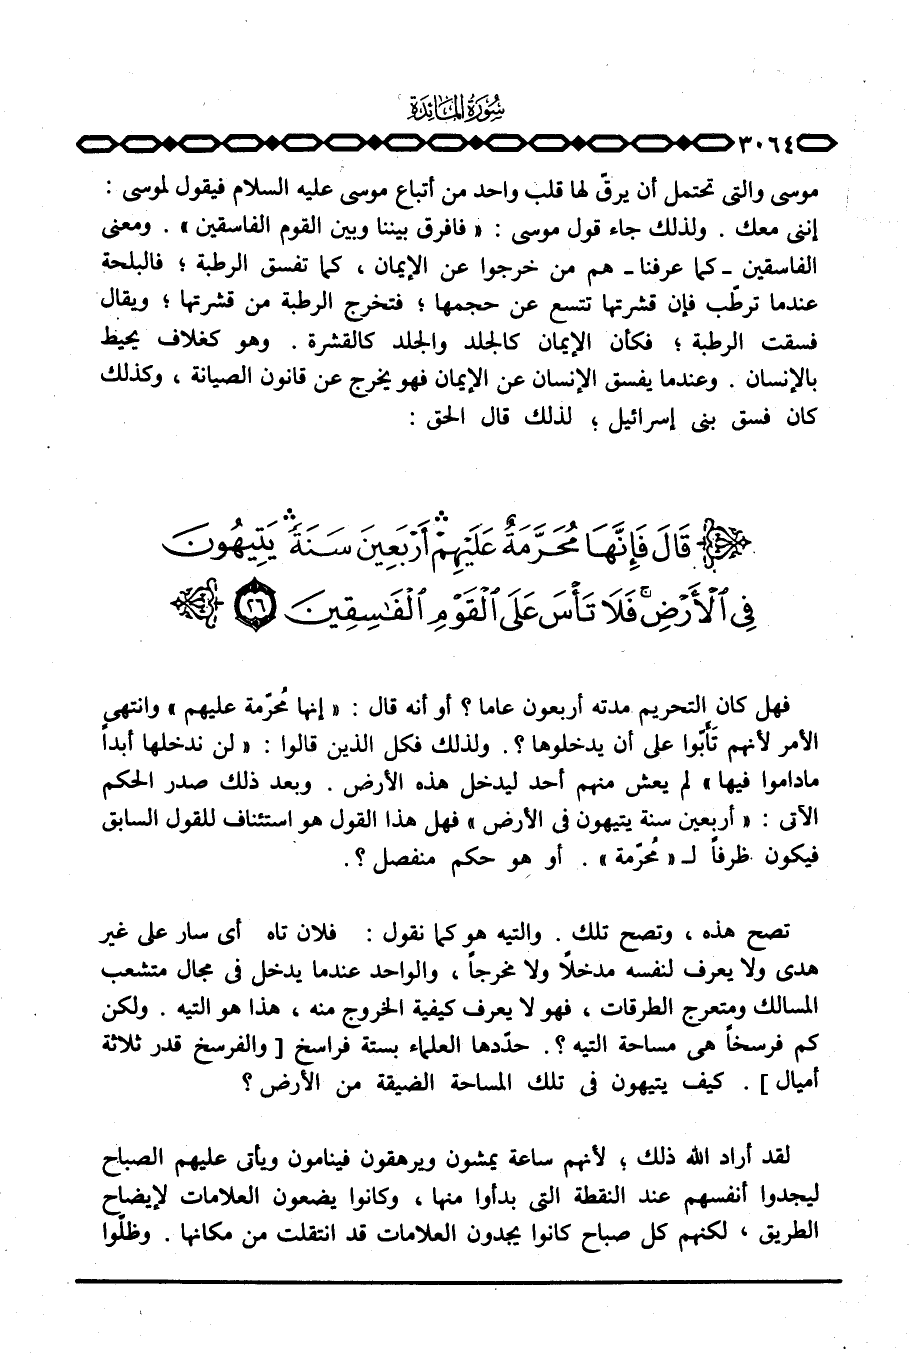 سُورَةُ المَائِدَة
٣٠٦٤
موسى والتى تحتمل أن يرقّ لها قلب واحد من أتباع موسى عليه السلام فيقول لموسى :
إننى معك . ولذلك جاء قول موسى : « فافرق بيننا وبين القوم الفاسقين » . ومعنى
الفاسقين ـ كما عرفنا ـ هم من خرجوا عن الإيمان ، كما تفسق الرطبة ؛ فالبلحة
عندما ترطّب فإن قشرتها تتسع عن حجمها ؛ فتخرج الرطبة من قشرتها ؛ ويقال
فسقت الرطبة ؛ فكأن الإيمان كالجلد والجلد كالقشرة . وهو كغلاف يحيط
بالإنسان . وعندما يفسق الإنسان عن الإيمان فهو يخرج عن قانون الصيانة ، وكذلك
كان فسق بنى إسرائيل ؛ لذلك قال الحق :
قَالَ فَإِنَّهَا مُحَرَّمَةٌ عَلَيْهِمْ ۛ أَرْبَعِينَ سَنَةً ۛ يَتِيهُونَ
فِى ٱلْأَرْضِ ۚ فَلَا تَأْسَ عَلَى ٱلْقَوْمِ ٱلْفَـٰسِقِينَ ٢٦
فهل كان التحريم مدته أربعون عاما ؟ أو أنه قال : « إنها مُحرّمة عليهم » وانتهى
الأمر لأنهم تَأَبّوا على أن يدخلوها ؟. ولذلك فكل الذين قالوا : « لن ندخلها أبداً
ماداموا فيها » لم يعش منهم أحد ليدخل هذه الأرض . وبعد ذلك صدر الحكم
الآتى : « أربعين سنة يتيهون فى الأرض » فهل هذا القول هو استئناف للقول السابق
فيكون ظرفاً لـ « مُحرّمة » . أو هو حكم منفصل ؟.
تصح هذه ، وتصح تلك . والتيه هو كما نقول : فلان تاه أى سار على غير
هدى ولا يعرف لنفسه مدخلاً ولا مخرجاً ، والواحد عندما يدخل فى مجال متشعب
المسالك ومتعرج الطرقات ، فهو لا يعرف كيفية الخروج منه ، هذا هو التيه . ولكن
كم فرسخاً هى مساحة التيه ؟. حدّدها العلماء بستة فراسخ [ والفرسخ قدر ثلاثة
أميال ] . كيف يتيهون فى تلك المساحة الضيقة من الأرض ؟
لقد أراد الله ذلك ؛ لأنهم ساعة يمشون ويرهقون فينامون ويأتى عليهم الصباح
ليجدوا أنفسهم عند النقطة التى بدأوا منها ، وكانوا يضعون العلامات لإيضاح
الطريق ، لكنهم كل صباح كانوا يجدون العلامات قد انتقلت من مكانها . وظلّوا